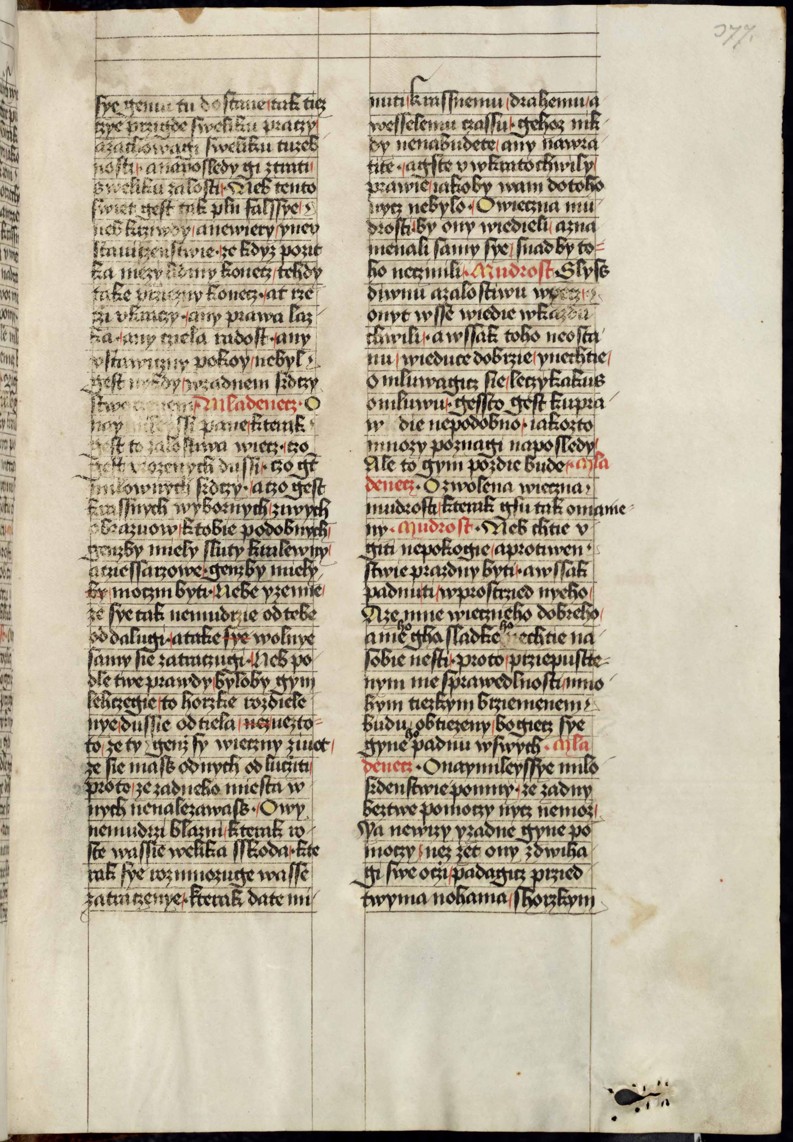 377.
sye gemu tu dostane tak tiez
trpye przigde sweliku praczy
azachowagi sweliku tuzeb
nosti · anaposledy gi ztrati
sweliku zalosti · Neb tento
swiet gest tak pln falssye ·
neb krziwdy / anewiery / ynev
stawiczenstwie · ze kdyz pozit
ka mezy konecz / tehdy
take konecz · at rze
czi vkratcy · any prawa laz
ka · any cziela radost · any
vstawiczny pokoy / nebyl ·
gest nikdy / wzadnem srdczy
Mladenecz · O
nay pane / kterak
gest to zalostiwa wiecz · czo
gest dussi · czo gt
milownych srdczy · aczo gest
krassnych wybornych / ziwych
obrazuow / ktobie podobnych /
genzby miely sluty kralewny /
aciessarzowe · genzby miely
by moczni byti · Nebe yzemie /
ze sye tak nemudrzie odtebe
oddalugi · atake sye wolnye
samy sie zatraczugi · Neb po
dle twe prawdy / byloby gym
lehczegie / to horzke rozdiele
nye dussie odtiela / nezuezto=
to / ze ty genz sy wieczny ziwot /
ze sie mass odnych odlucziti
proto / ze zadneho miesta w
nych nenalezawass · Owy
nemudrzi blazni / kterak ro
ste wassie welika sskoda · kte
rak sye rozmnozuge wasse
zatraczenye · kterak date mi
nuti krassnemu / drahemu / a
wesselemu czassu · gehoz nik
dy nenabudete / any nawra
tite · agste v wkratochwily /
prawie iakoby wam dotoho
nycz nebylo · Owieczna mu
drosti · by ony wiedieli / azna
menali samy sye / snadby to=
ho neczinili · Mudrost · Slyss
diwnu azalostiwu wyecz ·
onyt wsse wiedie wkazdu
chwili · awssak toho neosta
nu / wieduce dobrzie / ynechtie /
omluwagicz sie / leczykakus
omluwu · gessto gest kupra
w die nepodobno · iakozto
mnozy poznagi naposledy /
Ale to gym pozdie bude · Mla
denecz · Ozwolena wieczna
mudrosti / kterak gsu tak omame=
ny · Mudrost · Neb chtie v
giti nepokogie / aprotiwen
stwie prazdny byti · awssak
padnuti wprostrzied nyeho
Aze mne wieczneho dobreho /
ameho gha sladkeho nechtie na
sobie nesti · proto / przepustie=
nym me sprawedlnosti / mno
hym tiezkym brziemenem
budu obtiezeny / bogiecz sye
gyneho padnu wswych · Mla
denecz · Onaymileyssye milo
srdenstwie pomny · ze zadny
beztwe pomoczy nycz nemoz /
Ya newizy yzadne gyne po
moczy / nez zet ony zdwiha
gi swe oczi / padagicz przied
twyma nohama / shorzkym